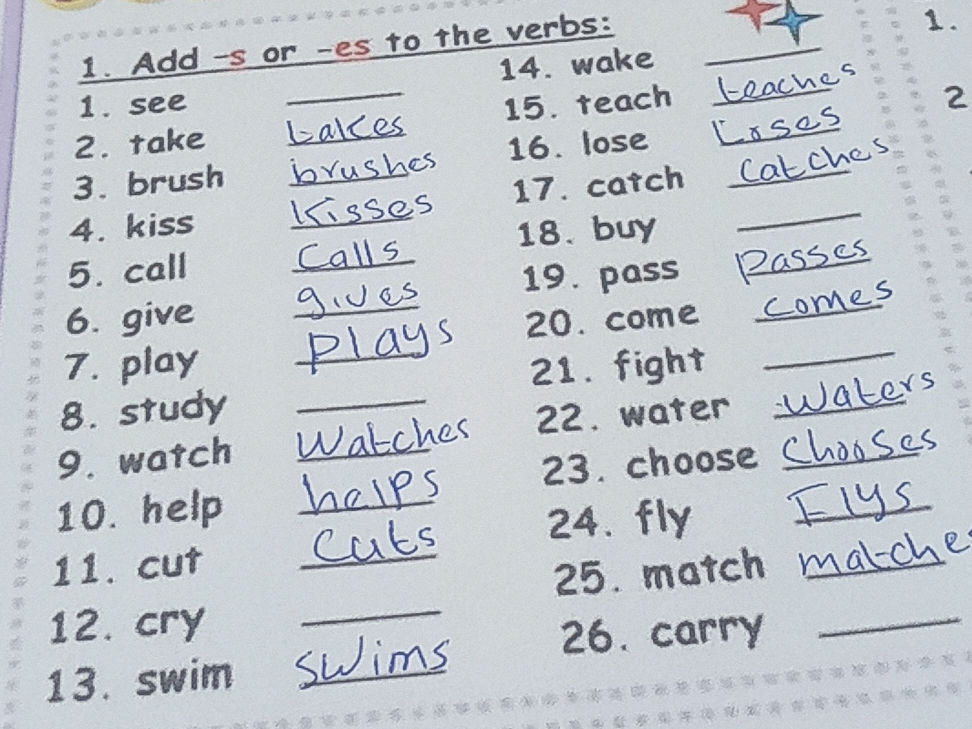 1. Add -s or -es to the verbs:
1. see ______
2. take takes
3. brush brushes
4. kiss Kisses
5. call Calls
6. give gives
7. play plays
8. study ______
9. watch Watches
10. help helps
11. cut Cuts
12. cry ______
13. swim swims
14. wake ______
15. teach teaches
16. lose Loses
17. catch Catches
18. buy ______
19. pass Passes
20. come comes
21. fight ______
22. water waters
23. choose Chooses
24. fly Flys
25. match matche
26. carry ______
1.
2